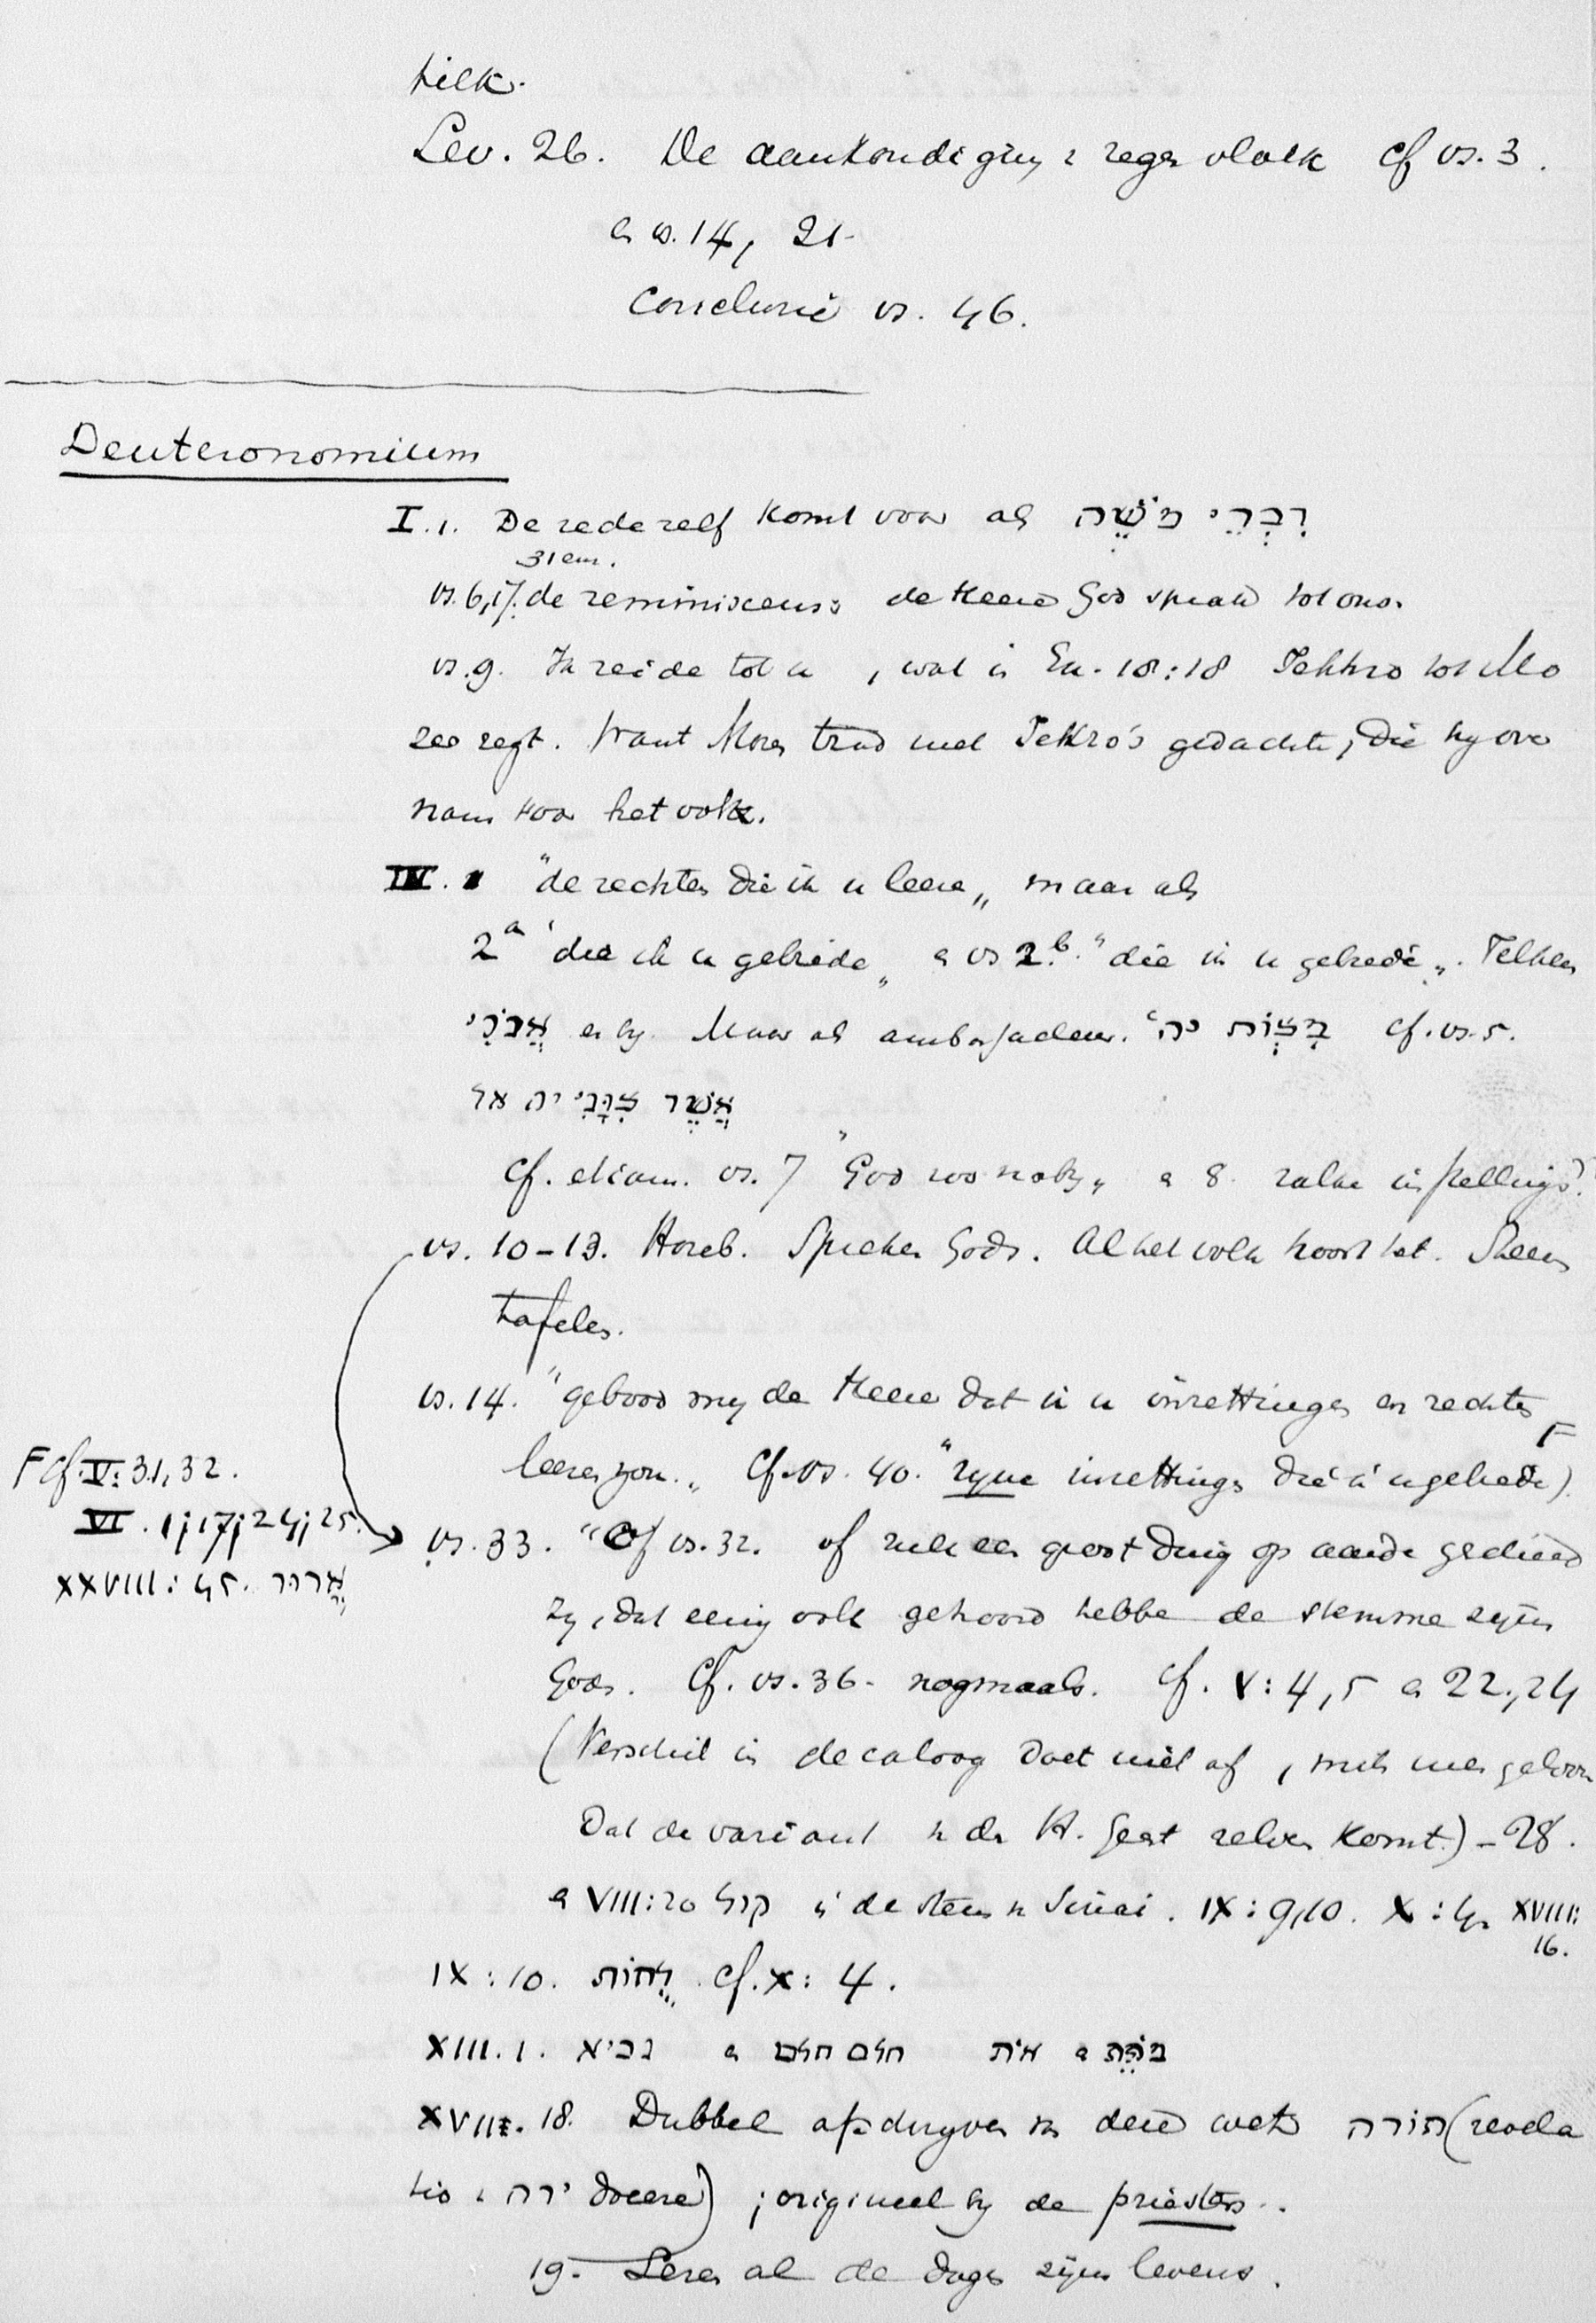 tielk.
Lev. 26. De aankondiging v zegen vloek cf vs. 3.
en vs. 14, 21.
Conclusie vs. 46.
Deuteronomium
I. 1. De rede zelf komt voor als דִּבְרֵי מֹשֶׁה
31 em.
vs. 6, 17. de reminiscens: de Heere God sprak tot ons.
vs. 9. Ik zeide tot u, wat in Ex. 18:18 Jethro tot Mo
zes zegt. Want Mozes trad met Jethro's gedachte, die hy over
nam voor het volk.
IV. 1 "de rechten die ik u leere„ maar als
2a "die ik u gebiede„ en vs 2b. "die ik u gebiede„. Telkens
אָנֹכִי er by. Maar als ambassadeur. מִצְוֹת יה' cf. vs. 5.
אֲשֶׁר צִוַּנִי יה אל
Cf. etiam. vs. 7 "God zoo naby„ en 8. zulke instellings?
vs. 10-13. Horeb. Spreken Gods. Al het volk hoort het. Steen
tafelen.
vs. 14. "gebood my de Heere dat ik u inzettingen en rechten
leeren zou.„ Cf. vs. 40. "zyne inzettings die ik u gebiede). F
F cf. V: 31, 32.
VI. 1; 17; 24; 25.
XXVIII: 45. ארור
vs. 33. "Of vs. 32. of zulk een groot ding op aarde geschied
zy, dat eenig volk gehoord hebbe de stemme zyns
Gods. Cf. vs. 36. nogmaals. Cf. V: 4, 5 en 22, 24
(Verschil in decaloog doet niet af, mits men geloove
Dat de variant v den H. Geest zelven komt.) - 28.
en VIII: 20 קול is de stem v Sinai. IX: 9, 10. X: 4. XVIII:
16.
IX: 10. לֻחוֹת cf. X: 4.
XIII. 1. נביא en חלם חלום אות en מוֹפֵת
XVII. 18. Dubbel afschryven van deze wet תורה (revela
tio v ירה docere); origineel by de priesters.
19. Lezen al de dagen zyns levens.